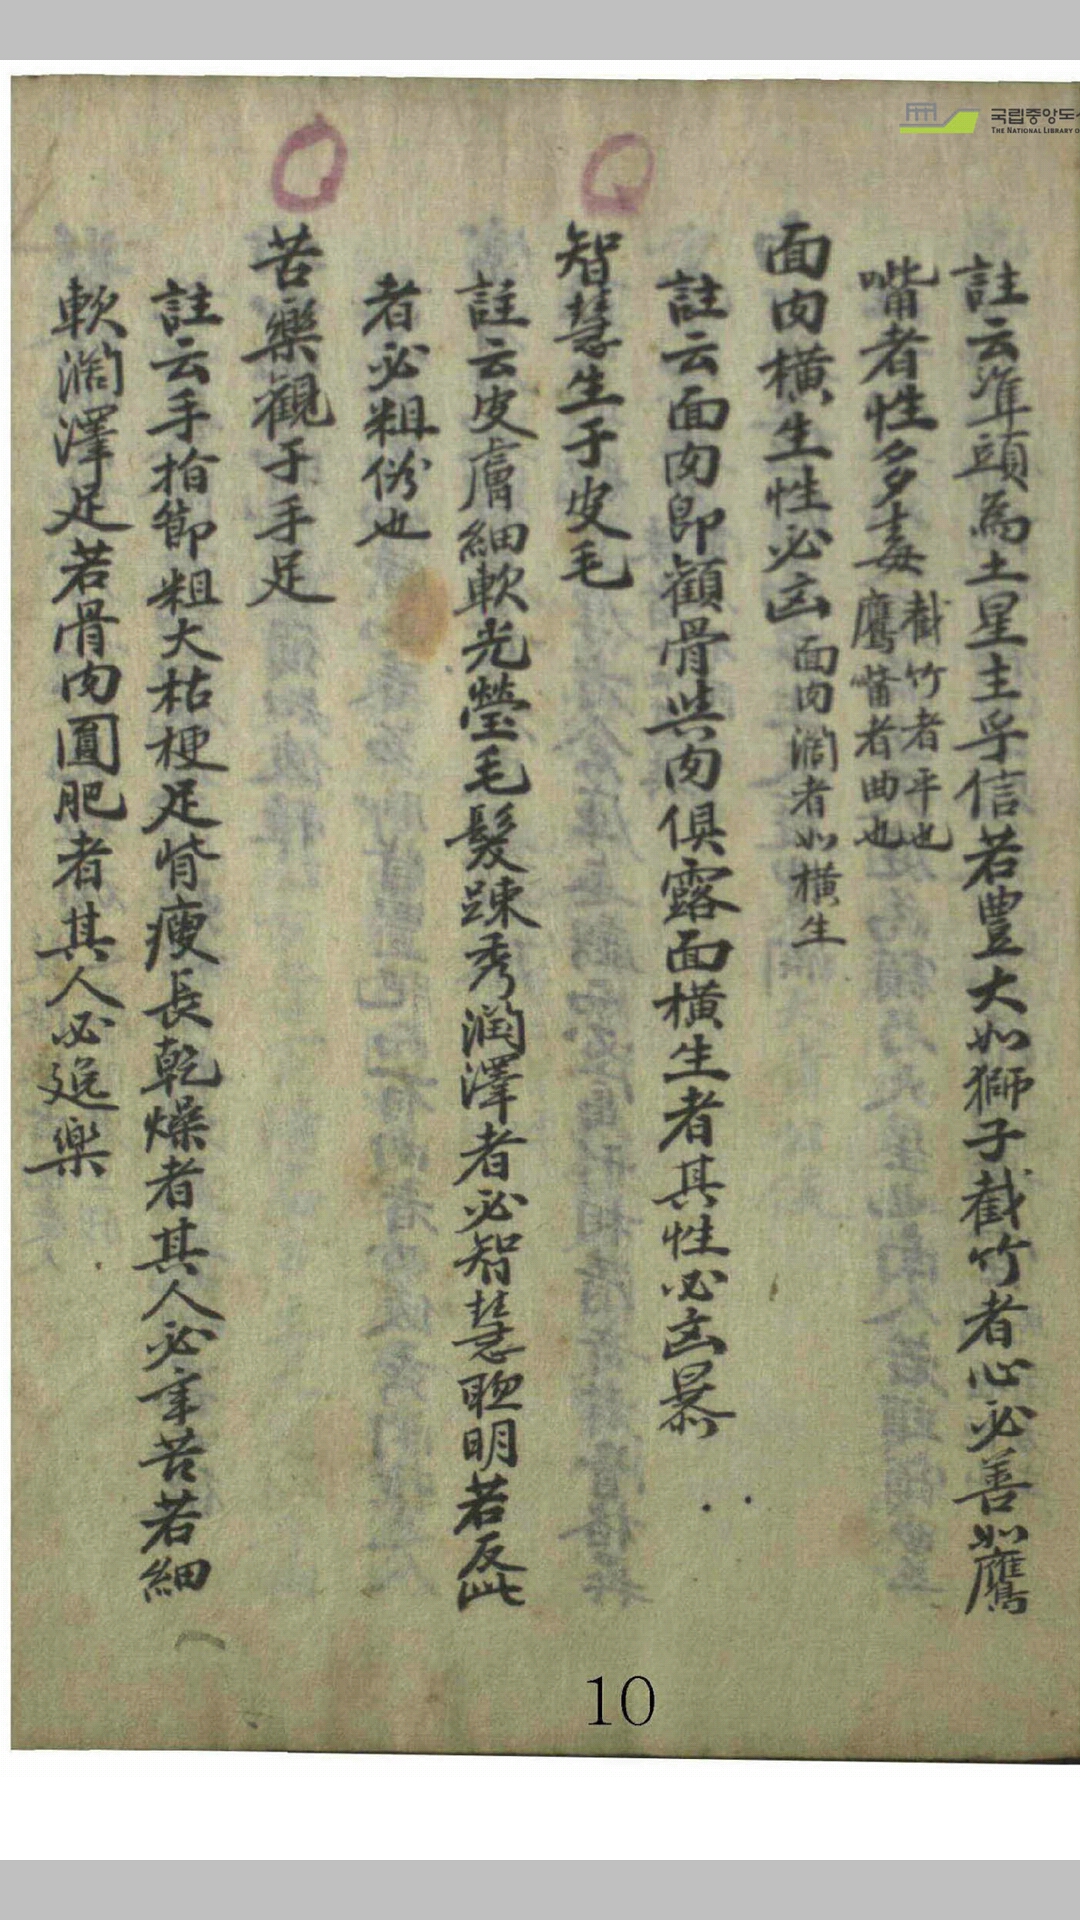 국립중앙도
THE NATIONAL LIBRARY O
註云準頭為土星主孚信若豊大如獅子截竹者心必善如鷹
嘴者性多毒
截竹者平也
鷹嘴者曲也
面肉橫生性必凶
面肉濶者如橫生
註云面肉即顴骨與肉俱露面橫生者其性必凶暴
智慧生于皮毛
註云皮膚細軟光瑩毛髮踈秀潤澤者必智慧聰明若反此
者必粗俗也
苦樂觀于手足
註云手指節粗大枯梗足背瘦長乾燥者其人必辛苦若細
軟濶澤足若骨肉圓肥者其人必逸樂
10